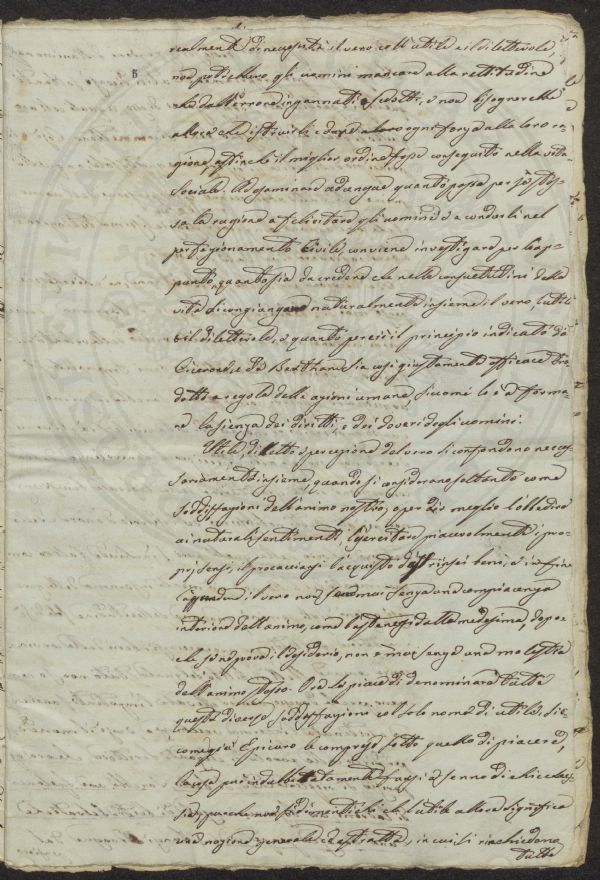 realmente di necessità il vero coll'utile e il dilettevole,
non potrebbero gli uomini mancare alla rettitudine
che dall'errore ingannati e sedotti, e non bisognerebbe
allora che istruirli e dare ogni forza alla loro ra-
gione, affinché il miglior ordine fosse conseguito nella vita
sociale. Ad esaminare adunque quanto possa per se stes-
sa la ragione a felicitare gli uomini e a condurli nel
perfezionamento Civile, conviene investigare per l'ap-
punto, quanto sia da credere che nelle consuetudini della
vita si congiungano naturalmente insieme il vero l'utile
e il dilettevole, e quanto perciò il principio indicato da
Cicerone, e da Bentham sia così giustamente efficace
a regola delle azioni umane, siccome lo è a forma-
re la scienza dei diritti, e dei doveri degli uomini.
Utile, diletto e percezione del vero si confondono neces-
sariamente insieme, quando si considerano soltanto come
soddisfazioni dell'animo nostro, o per dir meglio l'obbedire
ai naturali sentimenti l'esercitare piacevolmente i pro-
prj sensi, il procacciarsi l'acquisto beni, e in fine
il vero non senza una compiacenza
interiore dell'animo, come l'astenersi dalle medesime, dopo
che se n'è provato il desiderio, non è mai senza una molestia
dell'animo stesso. Ora se piace di denominare tutte
queste diverse soddisfazioni col solo nome di utile, sic-
come già Epicuro le comprese sotto quello di piacere,
la cosa può farsi a senno di chicches-
sia, purché non si dimentichi che l'utile allora significa
una nozione generale ed astratta, in cui si racchiudono
tutte